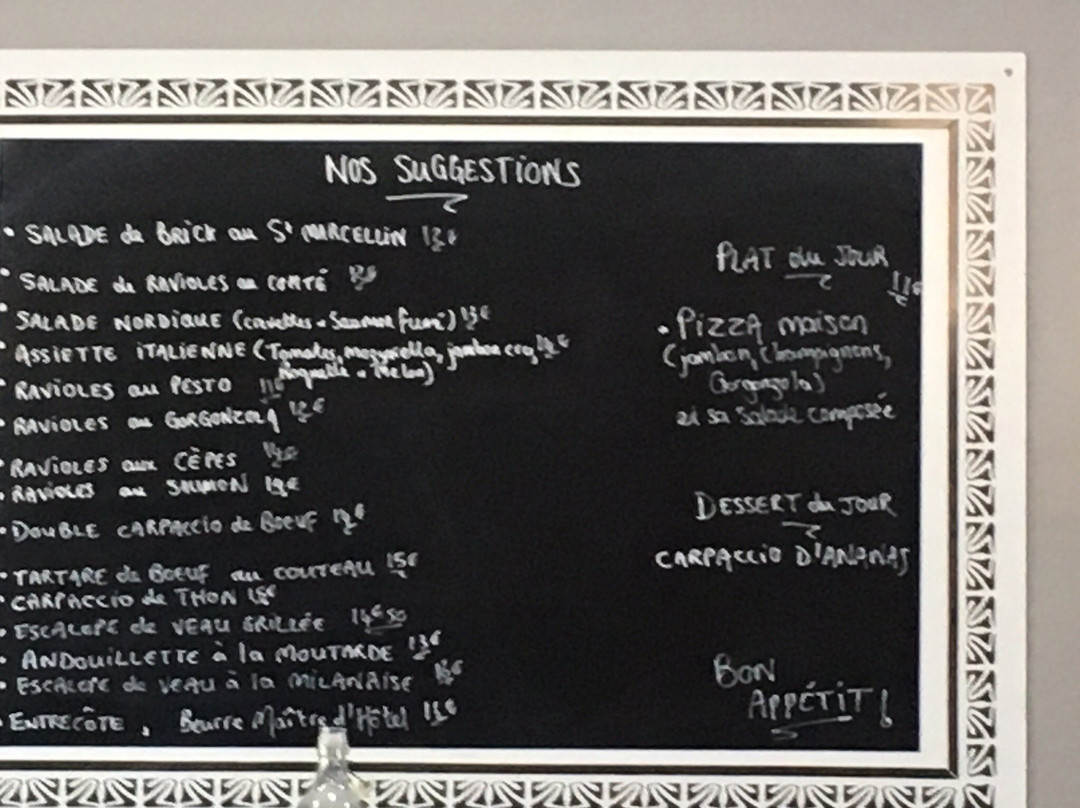 NOS SUGGESTIONS
• SALADE de BRICK au St MARCELLIN 13€
• SALADE de RAVIOLES au COMTÉ
• SALADE NORDIQUE (crevettes + Saumon fumé) 13€
• ASSIETTE ITALIENNE (Tomates, mozzarella, jambon cru,
Roquette + Melon)
• RAVIOLES au PESTO 11€
• RAVIOLES au GORGONZOLA 12€
• RAVIOLES aux CÈPES
• RAVIOLES au SAUMON
• DOUBLE CARPACCIO de BOEUF
• TARTARE de BOEUF au COUTEAU 15€
• CARPACCIO de THON 15€
• ESCALOPE de VEAU GRILLÉE 14€50
• ANDOUILLETTE à la MOUTARDE 13€
• ESCALOPE de VEAU à la MILANAISE
• ENTRECÔTE, Beurre Maître d'Hôtel
PLAT du JOUR
11€
• PIZZA maison
(jambon, Champignons,
Gorgonzola)
et sa Salade composée
DESSERT du JOUR
CARPACCIO D'ANANAS
BON
APPÉTIT !